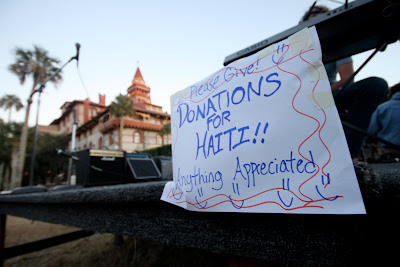 Please Give!
DONATIONS
FOR
HAITI!!
Anything Appreciated